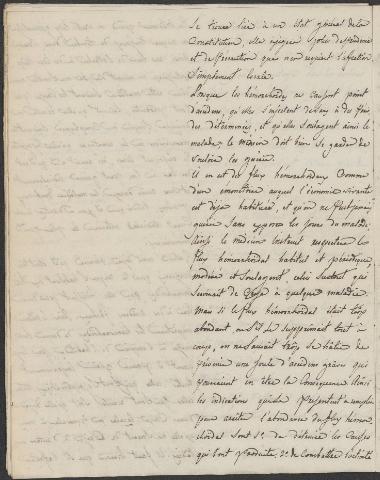 se trouve liée à un état général de la
Constitution, elle exige plus de prudence
et de précaution que
simplement locale.
Lorsque les hémorrhoïdes ne causent point
d'accidens, qu'elles de sang à des
déterminées, et qu'elles soulagent ainsi le
malade, le médecin doit bien se garder de
vouloir les guérir.
Il en est du flux hémorrhoïdal comme
d'un émonctoire auquel l'économie vivante
est déjà habituée, et qu'on ne peut jamais
guérir sans exposer les jours du malade,
ainsi le médecin instruit respectera le
flux hémorrhoïdal habituel et périodique,
modéré et soulageant, celui surtout qui
servirait de à quelque maladie.
Mais si le flux hémorrhoïdal était trop
abondant ou s'il se supprimait tout à
coup, on ne saurait trop se hâter de
prévenir une foule d'accidens graves qui
pourraient en être la conséquence. Ainsi
les indications qui se présentent à remplir
pour arrêter l'abondance du flux hémor-
rhoïdal sont 1.° de détruire les causes
qui l'ont produite, 2.° de combattre